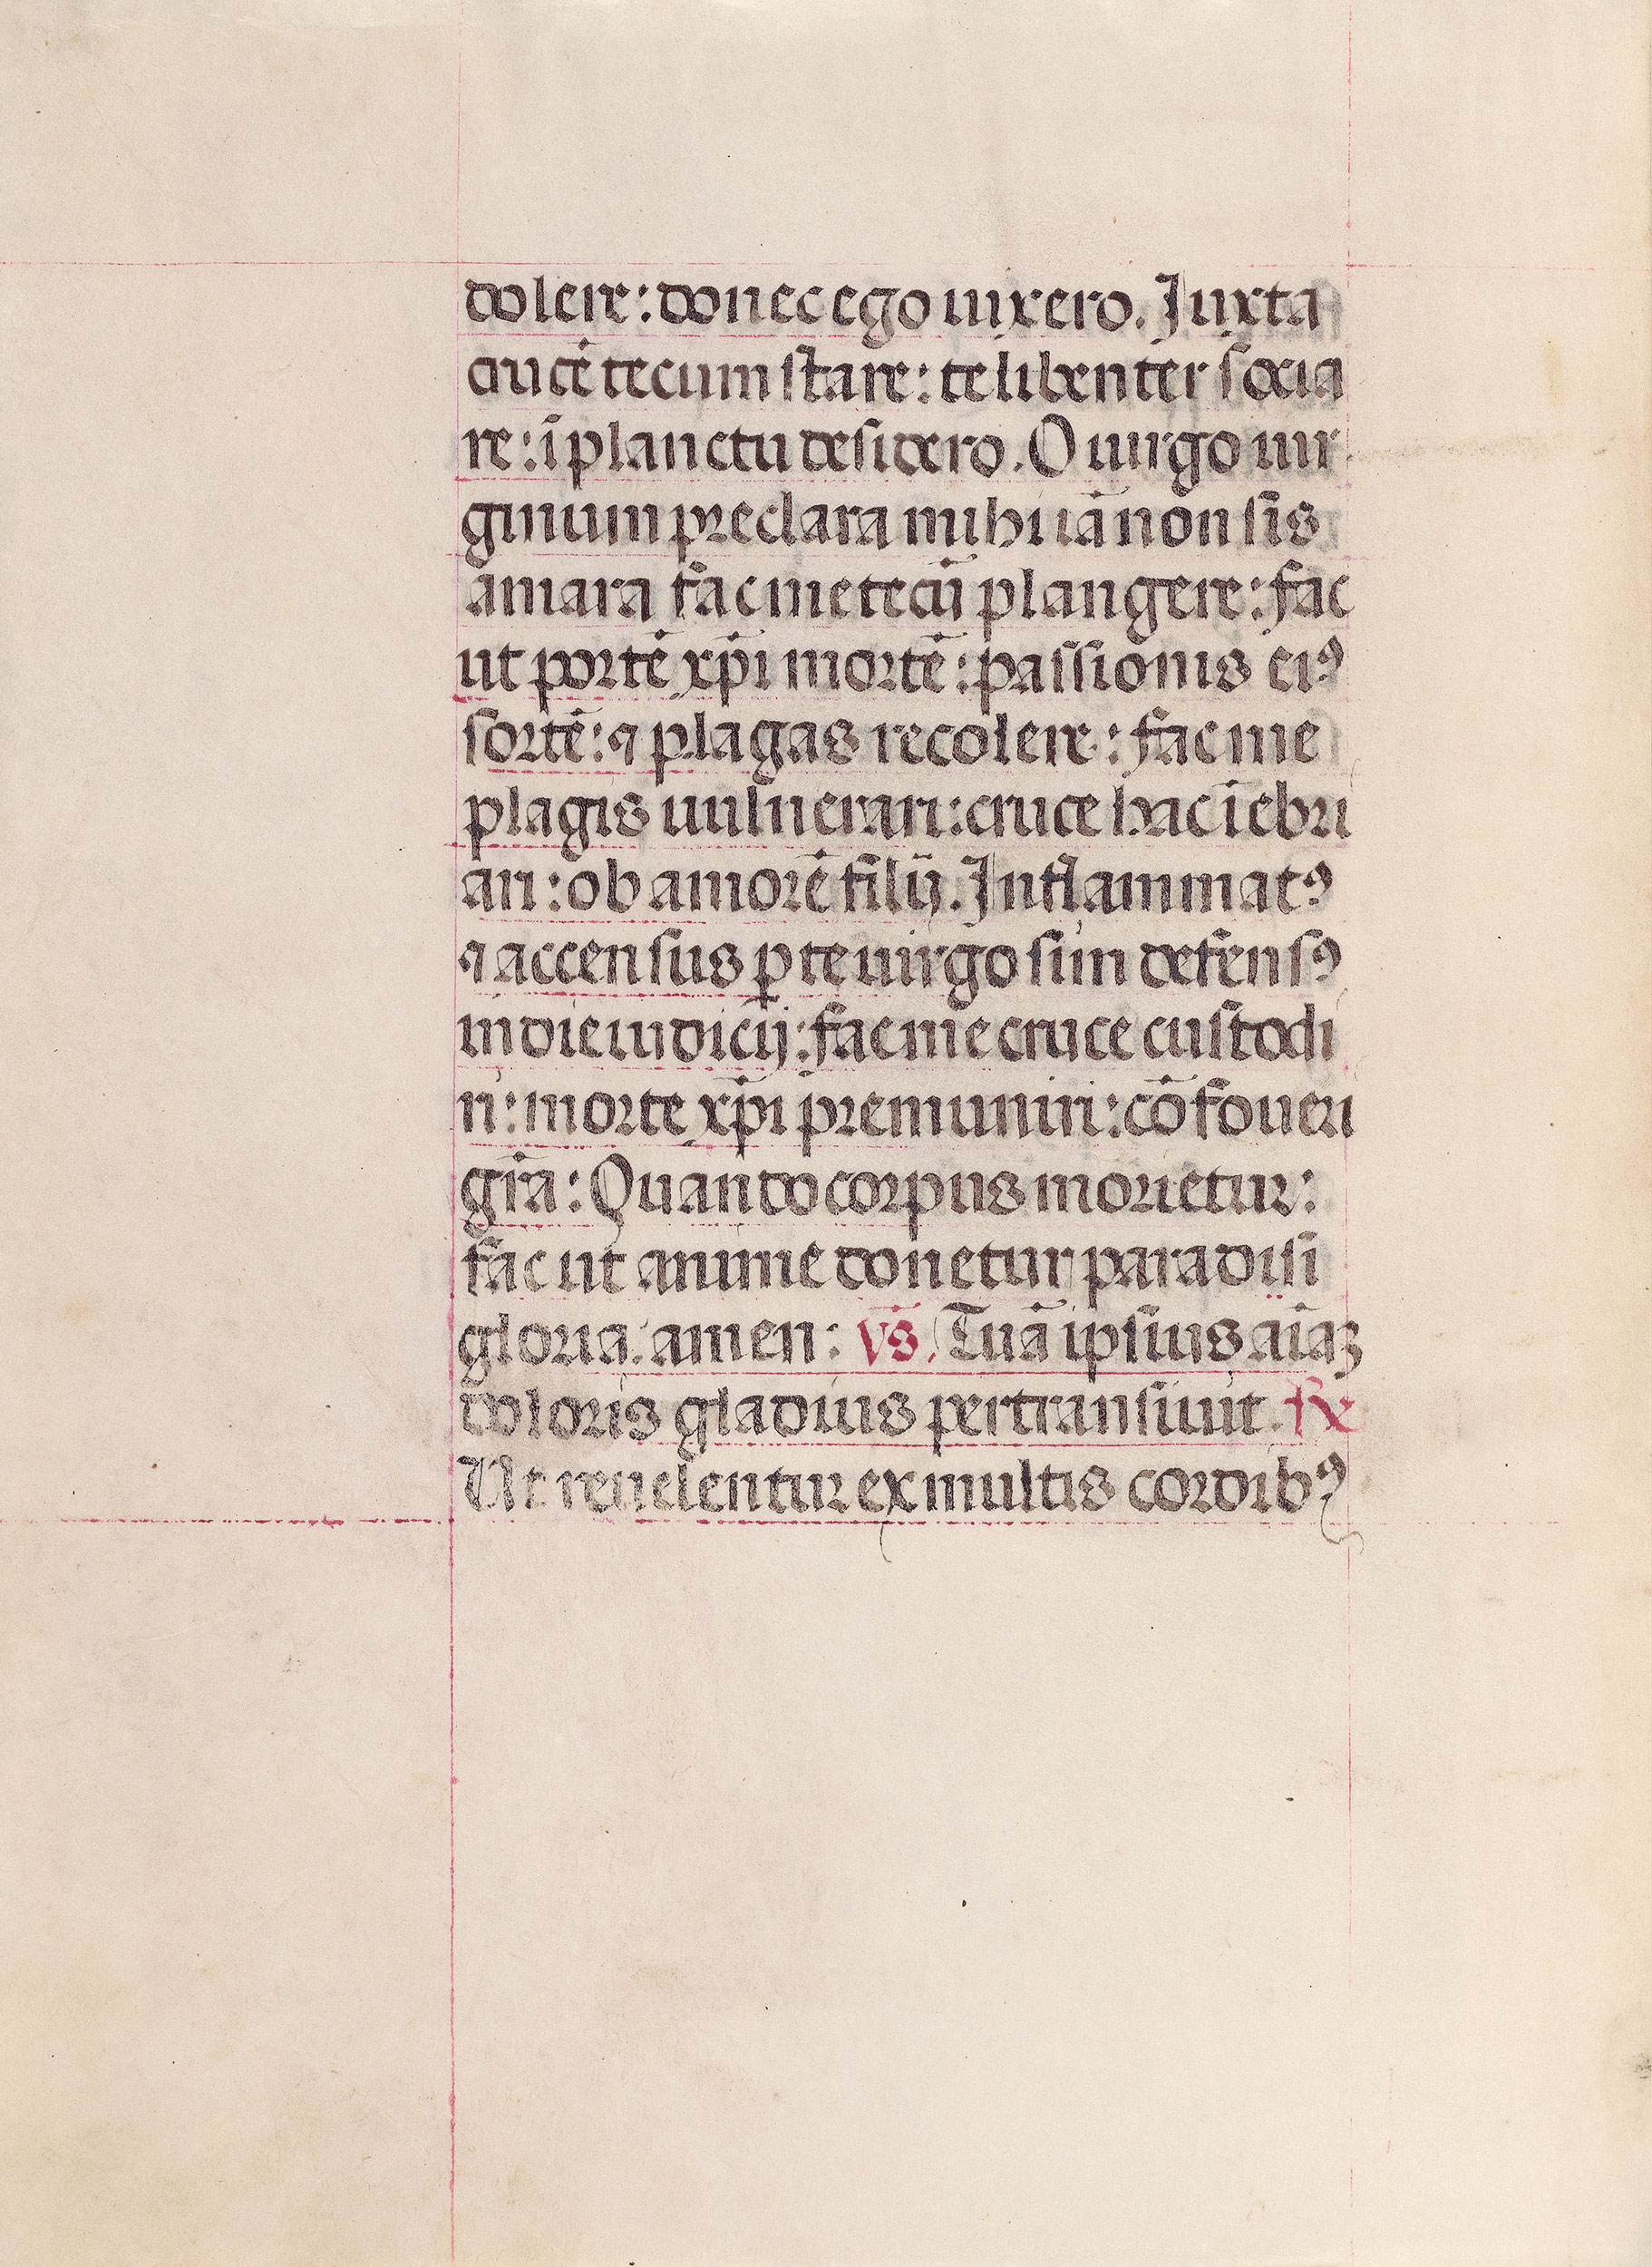 dolere: donec ego uixero. Juxta
crucē tecum stare: te libenter socia
re: ī planctu desidero. O uirgo uir
ginum preclara mihi iā non sis
amara fac me tecū plangere: fac
ut portē xp̄i mortē: passionis eiꝰ
sortē: ⁊ plagas recolere: fac me
plagis uulnerari: cruce hac īebri
ari: ob amorē filij. Inflammatꝰ
⁊ accensus ꝑ te uirgo sim defensꝰ
in die iudicij: fac me cruce custodi
ri: morte xp̄i premuniri: cōfoueri
grā: Quando corpus morietur:
fac ut anime donetur paradisi
gloria. amen: V̄s. Tuā ipsius aīaꝫ
doloris gladius pertransiuit. ℟
Ut reuelentur ex multis cordibꝰ